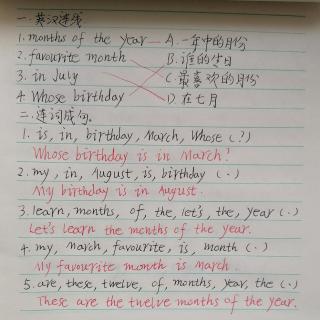 一. 英汉连线
1. months of the year A. 一年中的月份
2. favourite month B. 谁的生日
3. in July C. 最喜欢的月份
4. Whose birthday D. 在七月
二. 连词成句.
1. is, in, birthday, March, Whose (?)
Whose birthday is in March?
2. my, in, August, is, birthday (.)
My birthday is in August.
3. learn, months, of, the, let's, the, year (.)
Let's learn the months of the year.
4. my, March, favourite, is, month (.)
My favourite month is March.
5. are, these, twelve, of, months, year, the (.)
These are the twelve months of the year.